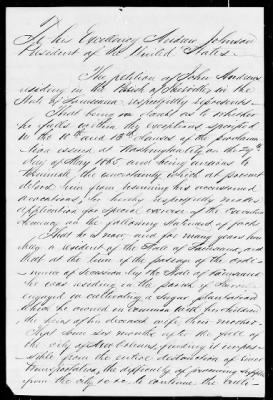 To His Excellency Andrew Johnson
President of the United States.
The petition of John Andrews
residing in the Parish of Iberville in the
State of Louisiana respectfully represents.
That being in doubt as to whether
he falls within the exceptions specified
in the 10th and 13th clauses of the proclama-
tion issued at Washington City on the 29th
day of May 1865 and being anxious to
terminate the uncertainty which at present
debars him from resuming his accustomed
avocations, he hereby respectfully makes
application for special exercise of the Executive
clemency, on the following statement of facts
That he is now and for many years has
been a resident of the State of Louisiana, and
that at the time of the passage of the ordi-
nance of Secession by the State of Louisiana
he was residing in the parish of
engaged in cultivating a sugar plantation
which he owned in common with his children
the heirs of his deceased wife, their mother.
That some six months after the fall of
the city of New Orleans, finding it impos-
sible from the entire destruction of
transportation, the difficulty of procuring supplies
from the city to continue the culti-